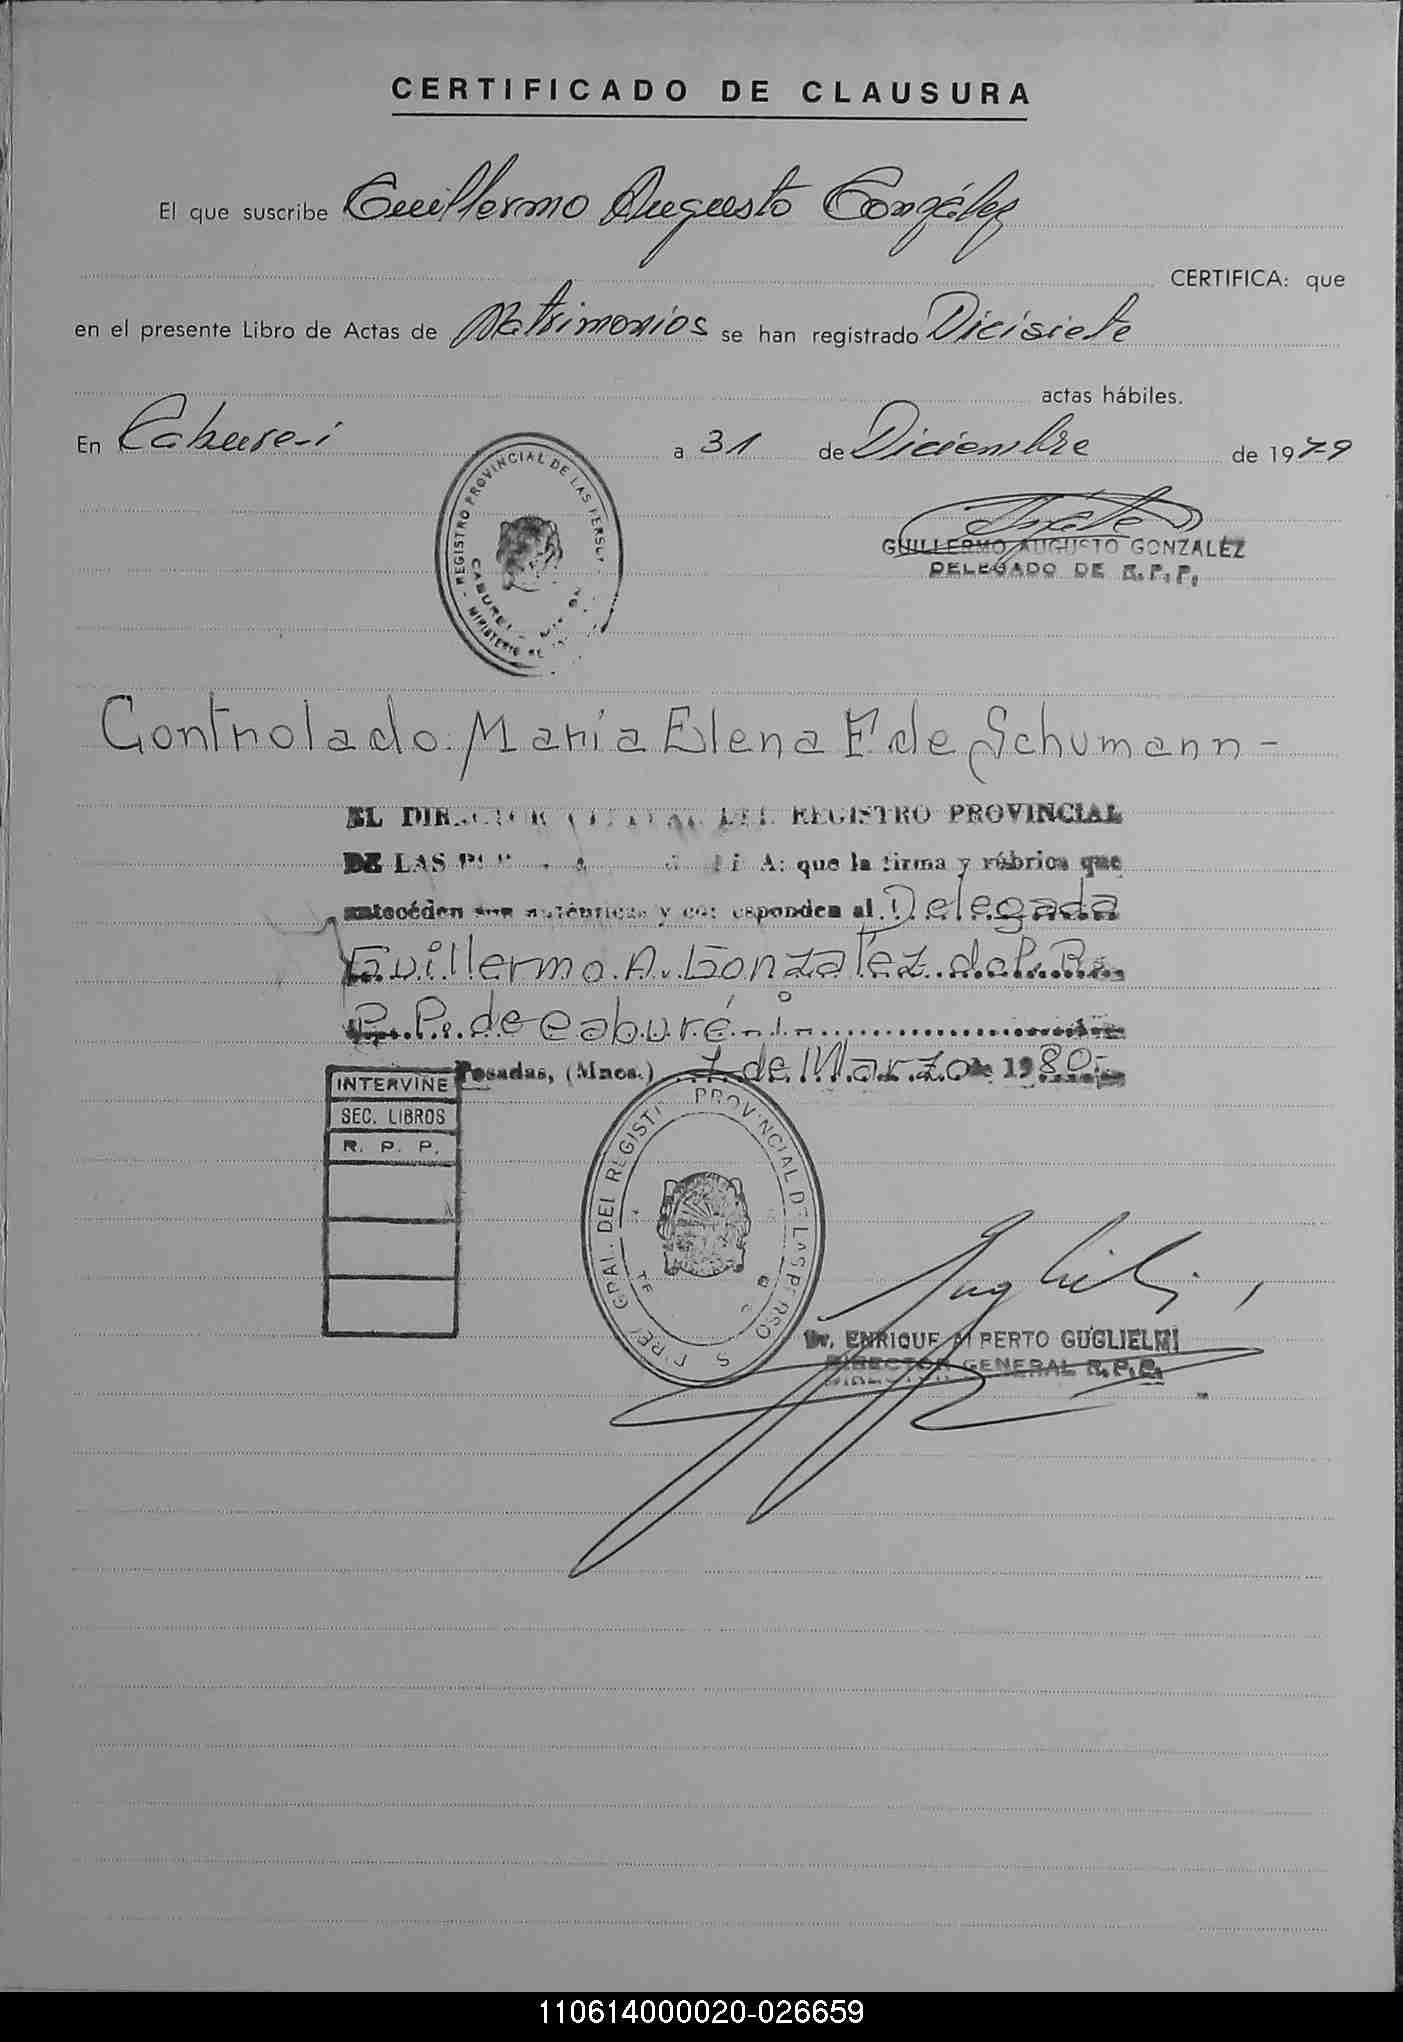 CERTIFICADO DE CLAUSURA
El que suscribe Guillermo Augusto González
CERTIFICA: que
en el presente Libro de Actas de Matrimonios se han registrado Dicisiete
actas hábiles.
En Cabure-i a 31 de Diciembre de 1979
REGISTRO PROVINCIAL DE LAS PERSO
CABURE-I
MINISTERIO
GUILLERMO AUGUSTO GONZALEZ
DELEGADO DE R.P.P.
Controlado: María Elena F. de Schumann-
EL DIRECTOR GENERAL DEL REGISTRO PROVINCIAL
DE LAS que la firma y rúbrica que
antecéden son auténticas y corresponden al Delegada
Guillermo A. Gonzalez do R.
P. P. de Caburé-i
Posadas, (Mnes.) 7 de Marzo de 1980-
INTERVINE
SEC. LIBROS
R. P. P.
GRAL. DEL REGISTR PROVINCIAL DE LAS PERSO S
Dr. ENRIQUE ALBERTO GUGLIELMI
DIRECTOR GENERAL R.P.P.
110614000020-026659